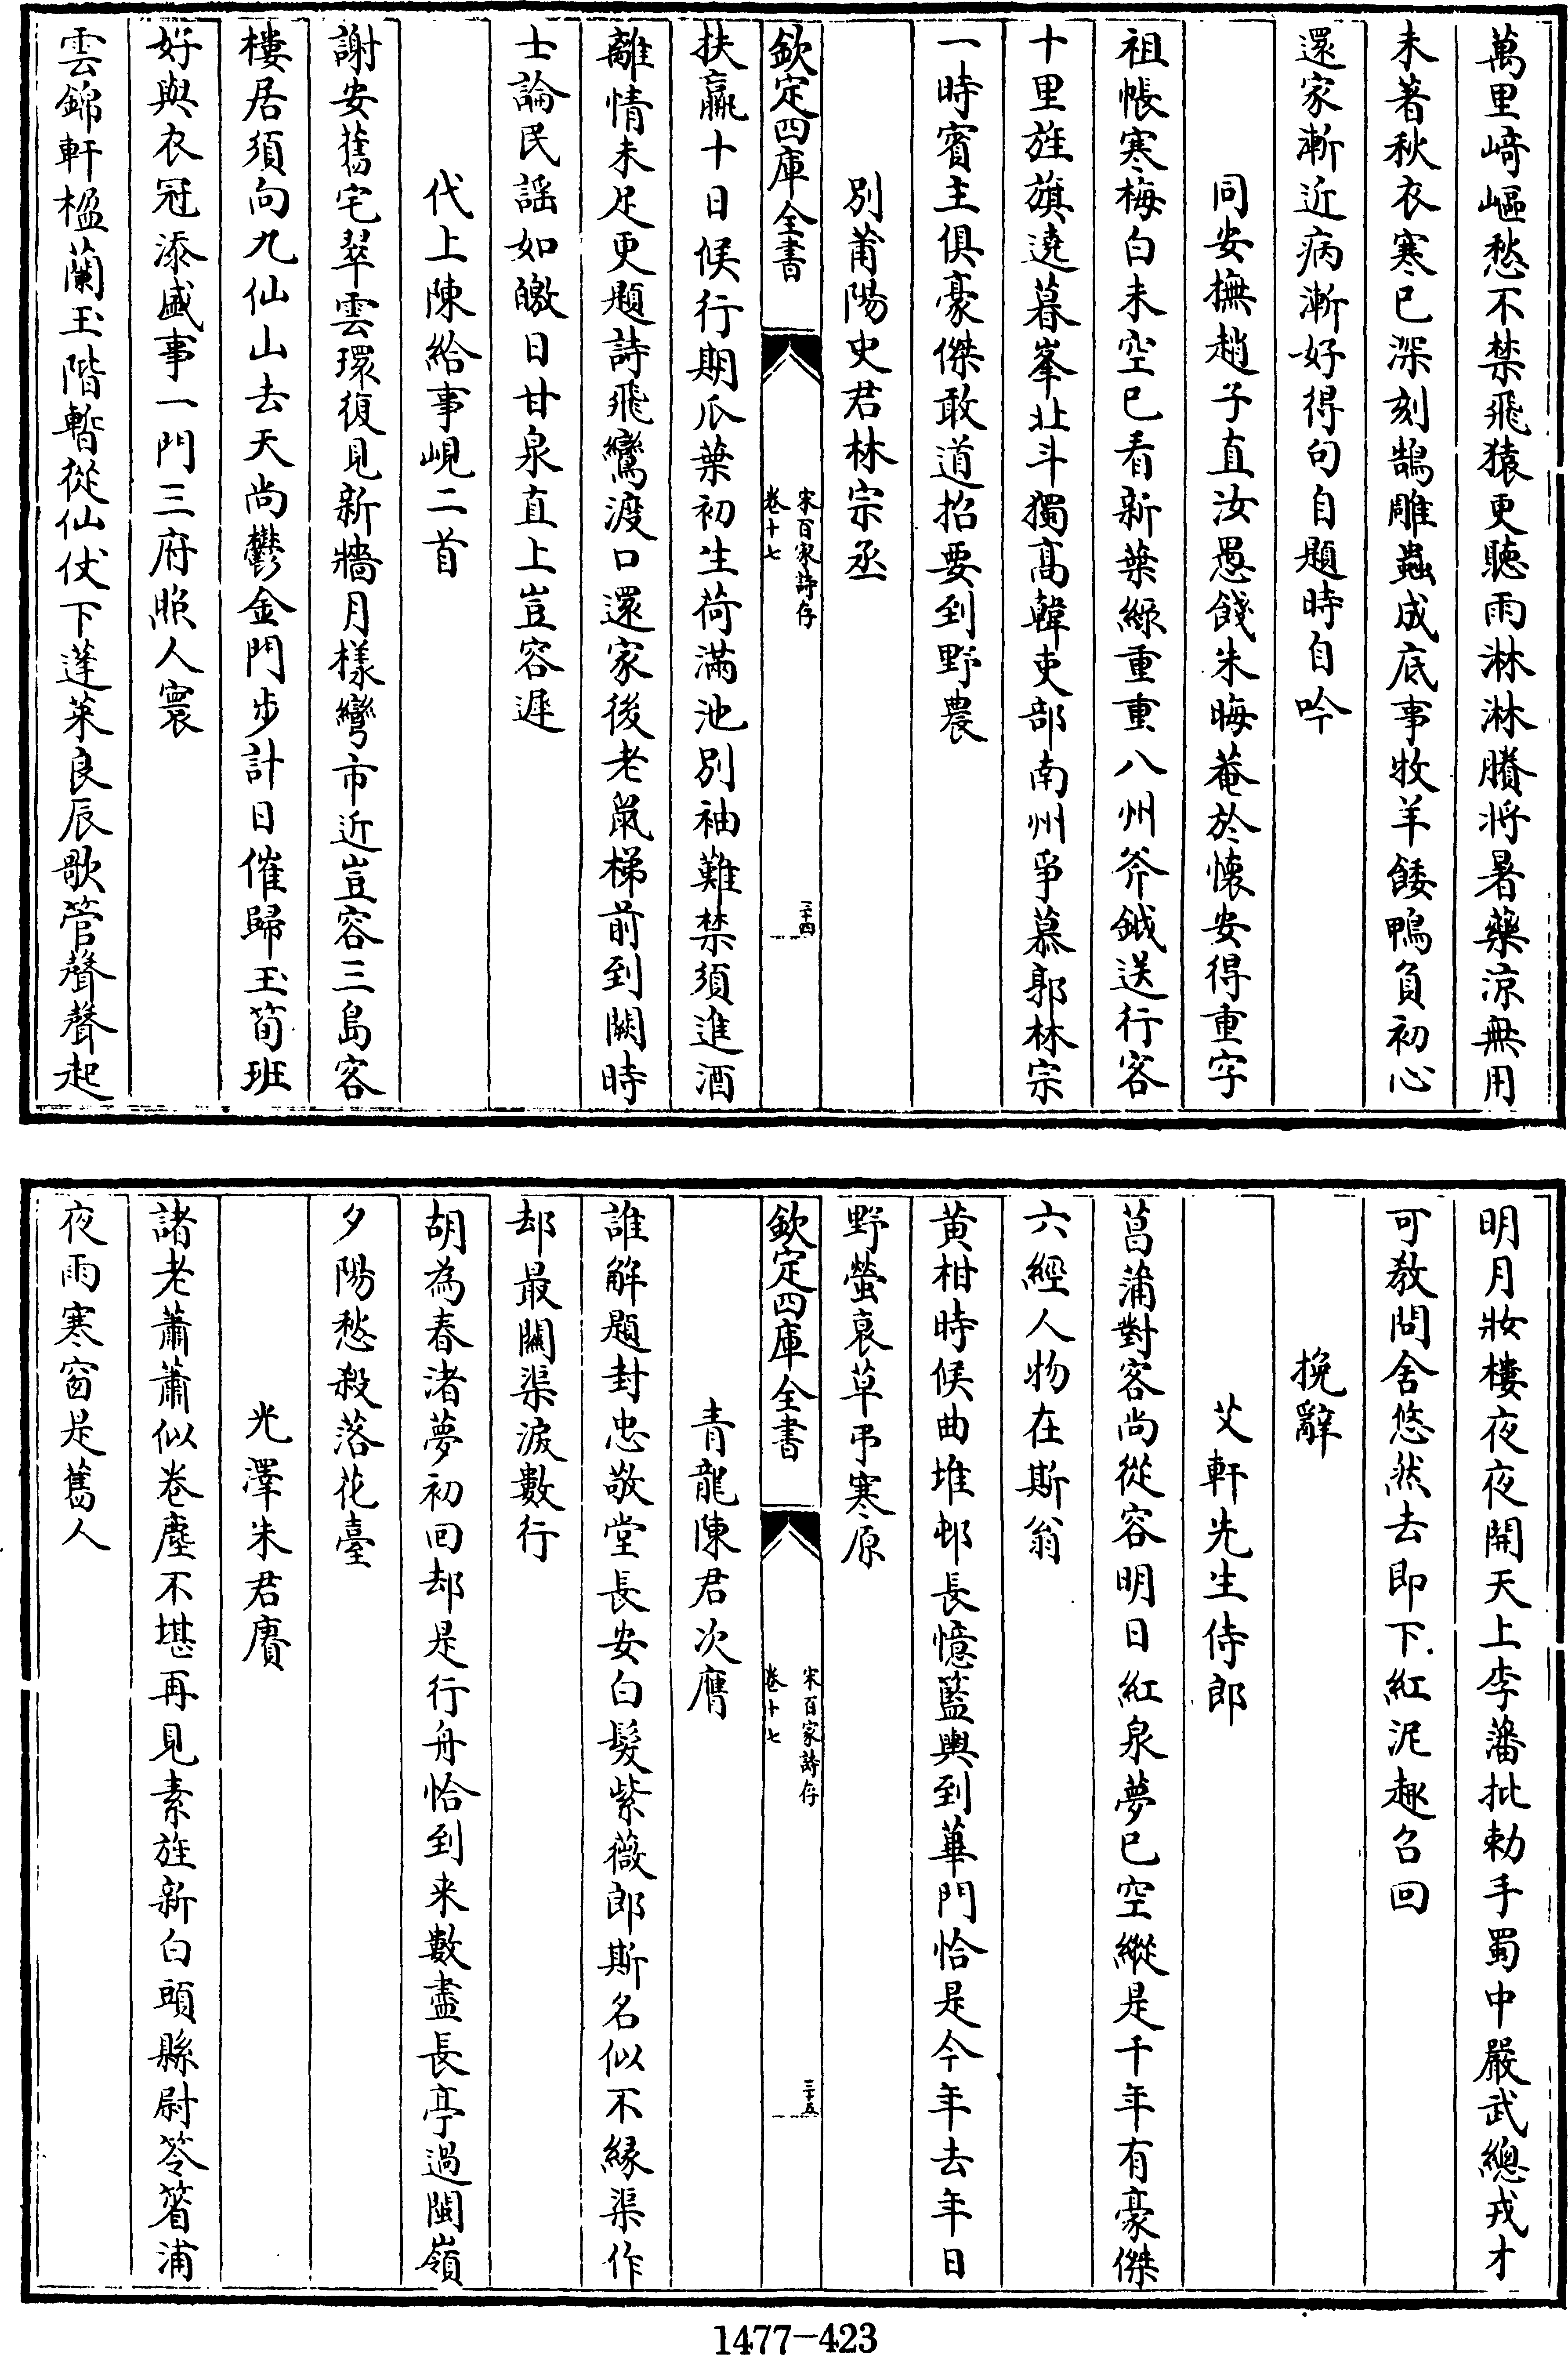 萬里﨑嶇愁不禁飛猿更聽雨淋淋賸将暑藥涼無用
未著秋衣寒已深刻鵠雕蟲成底事牧羊餧鴨負初心
還家漸近病漸好得句自題時自吟
同安撫趙子直汝愚餞朱晦菴於懷安得重字
祖帳寒梅白未空已看新葉緑重重八州斧鉞送行客
十里旌旗遶暮峯北斗獨髙韓吏部南州爭慕郭林宗
一時賓主俱豪傑敢道招要到野農
別莆陽史君林宗丞
欽定四庫全書
宋百家詩存
卷十七
三十四
扶羸十日候行期瓜葉初生荷滿池別袖難禁須進酒
離情未足更題詩飛鸞渡口還家後老鼠梯前到闕時
士論民謡如皦日甘泉直上豈容遲
代上陳給事峴二首
謝安舊宅翠雲環復見新牆月樣彎市近豈容三島客
樓居須向九仙山去天尚鬱金門步計日催歸玉筍班
好與衣冠添盛事一門三府照人寰
雲錦軒楹蘭玉階暫從仙仗下蓬萊良辰歌管聲聲起
明月妝樓夜夜開天上李藩批勅手蜀中嚴武總戎才
可教問舍悠然去即下紅泥趣召回
挽辭
艾軒先生侍郎
菖蒲對客尚從容明日紅泉夢已空縱是千年有豪傑
六經人物在斯翁
黄柑時候曲堆邨長憶籃輿到蓽門恰是今年去年日
野螢哀草弔寒原
欽定四庫全書
宋百家詩存
卷十七
三十五
青龍陳君次膺
誰解題封忠敬堂長安白髮紫薇郎斯名似不緣渠作
却最關渠淚數行
胡為春渚夢初回却是行舟恰到来數盡長亭過閩嶺
夕陽愁殺落花臺
光澤朱君賡
諸老蕭蕭似卷塵不堪再見素旌新白頭縣尉笭箵浦
夜雨寒窗是舊人
1477—423